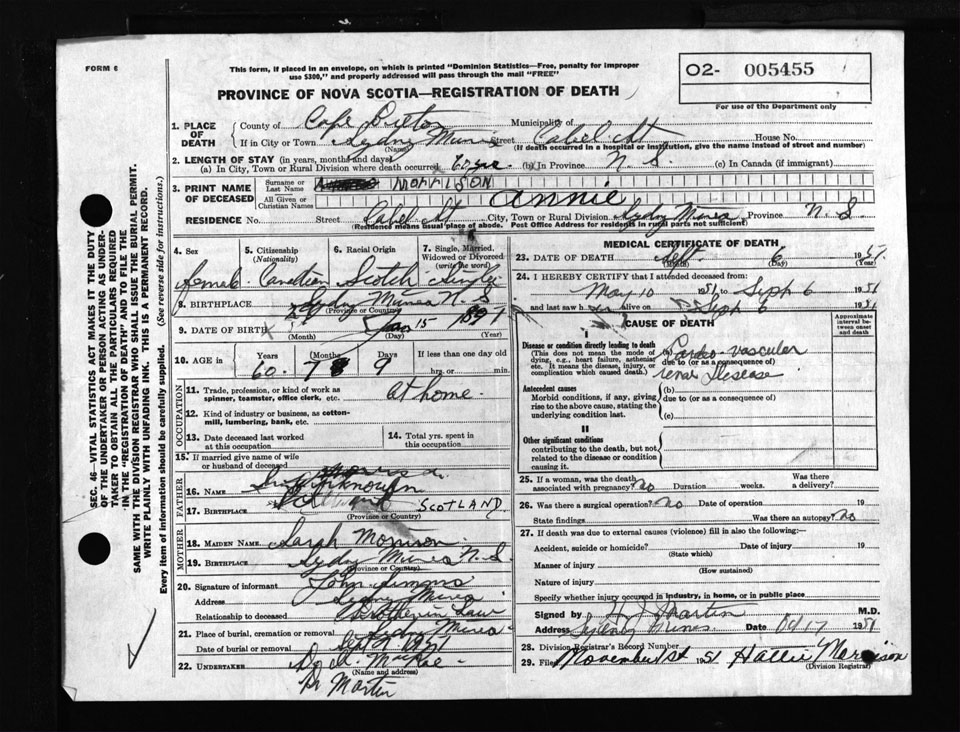 FORM 6
This form, if placed in an envelope, on which is printed "Dominion Statistics—Free, penalty for improper
use $300," and properly addressed will pass through the mail "FREE"
O2- 005455
For use of the Department only
PROVINCE OF NOVA SCOTIA—REGISTRATION OF DEATH
1. PLACE OF DEATH
County of Cape Breton Municipality of
If in City or Town Sydney Mines Street Cabel St House No.
(Name) (If death occurred in a hospital or institution, give the name instead of street and number)
2. LENGTH OF STAY (in years, months and days)
(a) In City, Town or Rural Division where death occurred 60 yrs (b) In Province N. S. (c) In Canada (if immigrant)
3. PRINT NAME OF DECEASED
Surname or Last Name MORRISON
All Given or Christian Names annie
RESIDENCE No. Street Cabel St City, Town or Rural Division Sydney Mines Province N. S
(Residence means usual place of abode. Post Office Address for residents in rural parts not sufficient)
4. Sex female
5. Citizenship (Nationality) Canadian
6. Racial Origin Scotch
7. Single, Married, Widowed or Divorced (write the word) Single
8. BIRTHPLACE Sydney Mines N. S
(Province or Country)
9. DATE OF BIRTH Jan 15 1891
(Month) (Day) (Year)
10. AGE in Years Months Days If less than one day old
60 7 9 hrs. or min.
OCCUPATION
11. Trade, profession, or kind of work as spinner, teamster, office clerk, etc. at home.
12. Kind of industry or business, as cotton-mill, lumbering, bank, etc.
13. Date deceased last worked at this occupation
14. Total yrs. spent in this occupation
15. If married give name of wife or husband of deceased
FATHER
16. NAME unknown
17. BIRTHPLACE SCOTLAND
(Province or Country)
MOTHER
18. MAIDEN NAME Sarah Morrison
19. BIRTHPLACE Sydney Mines N. S
(Province or Country)
20. Signature of informant John Simms
Address Sydney Mines
Relationship to deceased Brother in Law
21. Place of burial, cremation or removal Sydney Mines
Date of burial or removal Sept 1951
22. UNDERTAKER
(Name and address)
Dr Martin
MEDICAL CERTIFICATE OF DEATH
23. DATE OF DEATH Sept. 6 1951
(Month) (Day) (Year)
24. I HEREBY CERTIFY that I attended deceased from:
May 10 1951 to Sept 6 1951
and last saw h alive on Sept 6 1951
CAUSE OF DEATH
Approximate interval between onset and death
I
Disease or condition directly leading to death
(This does not mean the mode of dying, e.g., heart failure, asthenia, etc. It means the disease, injury, or complication which caused death.)
(a) Cardio-vascular
due to (or as a consequence of)
renal Disease
Antecedent causes
Morbid conditions, if any, giving rise to the above cause, stating the underlying condition last.
(b)
due to (or as a consequence of)
(c)
II
Other significant conditions contributing to the death, but not related to the disease or condition causing it.
25. If a woman, was the death associated with pregnancy? no Duration weeks. Was there a delivery?
26. Was there a surgical operation? no Date of operation 19
State findings Was there an autopsy? no
27. If death was due to external causes (violence) fill in also the following:—
Accident, suicide or homicide? Date of injury 19
(State which)
Manner of injury
(How sustained)
Nature of injury
Specify whether injury occurred in industry, in home, or in public place
Signed by H J Martin M.D.
Address Sydney Mines Date Oct 17 1951
28. Division Registrar's Record Number
29. Filed November 1st 1951 Hattie Morrison
(Division Registrar)
SEC. 46—VITAL STATISTICS ACT MAKES IT THE DUTY
OF THE UNDERTAKER OR PERSON ACTING AS UNDER-
TAKER TO OBTAIN ALL THE PARTICULARS REQUIRED
IN THE "REGISTRATION OF DEATH" AND TO FILE THE
SAME WITH THE DIVISION REGISTRAR WHO SHALL ISSUE THE BURIAL PERMIT.
WRITE PLAINLY WITH UNFADING INK. THIS IS A PERMANENT RECORD.
Every item of information should be carefully supplied. (See reverse side for instructions.)